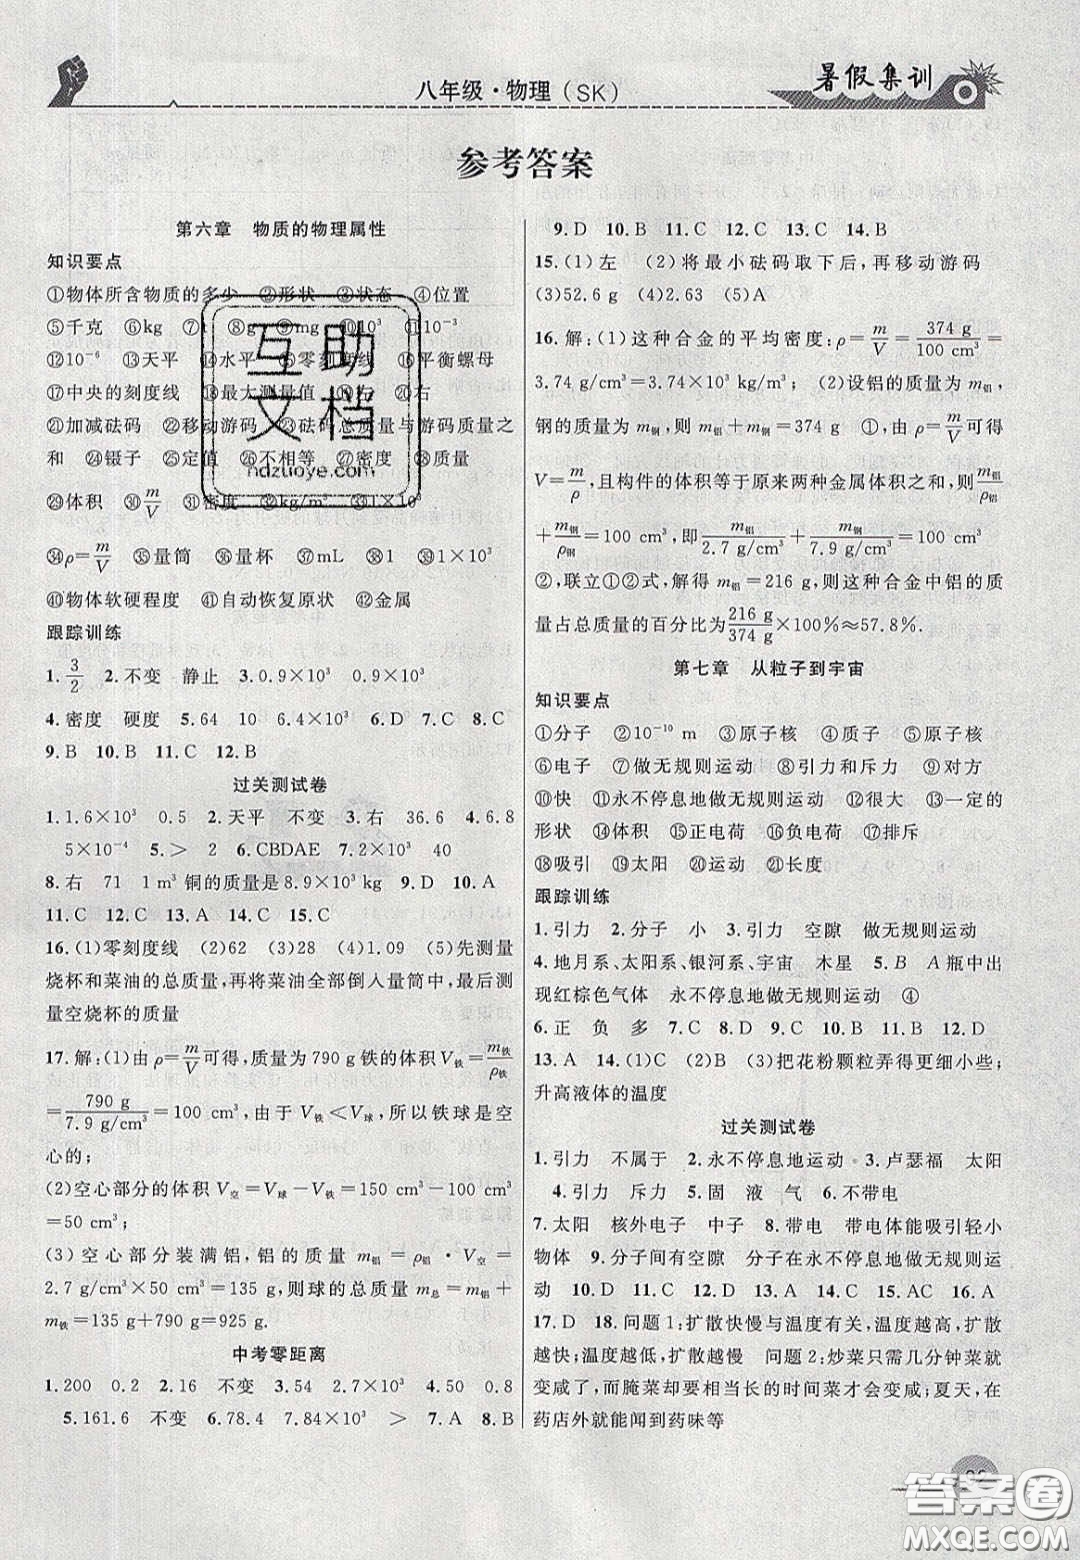 八年级·物理(SK)
暑假集训
参考答案
第六章 物质的物理属性
知识要点
①物体所含物质的多少 ②形状 ③状态 ④位置
⑤千克 ⑥kg ⑦t ⑧g ⑨mg ⑩10³ ⑪10⁻³
⑫10⁻⁶ ⑬天平 ⑭水平 ⑮零刻度线 ⑯平衡螺母
⑰中央的刻度线 ⑱最大测量值 ⑲左 ⑳右
㉑加减砝码 ㉒移动游码 ㉓砝码总质量与游码质量之
和 ㉔镊子 ㉕定值 ㉖不相等 ㉗密度 ㉘质量
㉙体积 ㉚m/V ㉛密度 ㉜kg/m³ ㉝1×10³
㉞ρ=m/V ㉟量筒 ㊱量杯 ㊲mL ㊳1 ㊴1×10³
㊵物体软硬程度 ㊶自动恢复原状 ㊷金属
跟踪训练
1.3/2 2.不变 静止 3.0.9×10³ 0.9×10³
4.密度 硬度 5.64 10 6.4×10³ 6.D 7.C 8.C
9.B 10.B 11.C 12.B
过关测试卷
1.1.6×10³ 0.5 2.天平 不变 3.右 36.6 4.6.8
5×10⁻⁴ 5.> 2 6.CBDAE 7.2×10³ 40
8.右 71 1 m³铜的质量是8.9×10³ kg 9.D 10.A
11.C 12.C 13.A 14.C 15.C
16.(1)零刻度线 (2)62 (3)28 (4)1.09 (5)先测量
烧杯和菜油的总质量,再将菜油全部倒人量筒中,最后测
量空烧杯的质量
17.解:(1)由ρ=m/V可得,质量为790 g铁的体积V铁=m铁/ρ铁
=790 g/7.9 g/cm³=100 cm³,由于V铁<V球,所以铁球是空
心的;
(2)空心部分的体积V空=V球-V铁=150 cm³-100 cm³
=50 cm³;
(3)空心部分装满铝,铝的质量m铝=ρ铝·V空=
2.7 g/cm³×50 cm³=135 g,则球的总质量m总=m铝+
m铁=135 g+790 g=925 g.
中考零距离
1.200 0.2 2.16 不变 3.54 2.7×10³ 4.50 0.8
5.161.6 不变 6.78.4 7.84×10³ > 7.A 8.B
9.D 10.B 11.C 12.C 13.C 14.B
15.(1)左 (2)将最小砝码取下后,再移动游码
(3)52.6 g (4)2.63 (5)A
16.解:(1)这种合金的平均密度:ρ=m/V=374 g/100 cm³=
3.74 g/cm³=3.74×10³ kg/m³; (2)设铝的质量为m铝,
钢的质量为m钢,则m铝+m钢=374 g ①,由ρ=m/V可得
V=m/ρ,且构件的体积等于原来两种金属体积之和,则m铝/ρ铝
+m钢/ρ钢=100 cm³,即m铝/2.7 g/cm³+m钢/7.9 g/cm³=100 cm³
②,联立①②式,解得m铝=216 g,则这种合金中铝的质
量占总质量的百分比为216 g/374 g×100%≈57.8%.
第七章 从粒子到宇宙
知识要点
①分子 ②10⁻¹⁰ m ③原子核 ④质子 ⑤原子核
⑥电子 ⑦做无规则运动 ⑧引力和斥力 ⑨对方
⑩快 ⑪永不停息地做无规则运动 ⑫很大 ⑬一定的
形状 ⑭体积 ⑮正电荷 ⑯负电荷 ⑰排斥
⑱吸引 ⑲太阳 ⑳运动 ㉑长度
跟踪训练
1.引力 2.分子 小 3.引力 空隙 做无规则运动
4.地月系、太阳系、银河系、宇宙 木星 5.B A瓶中出
现红棕色气体 永不停息地做无规则运动 ④
6.正 负 多 7.C 8.D 9.C 10.B 11.C 12.D
13.A 14.(1)C (2)B (3)把花粉颗粒弄得更细小些;
升高液体的温度
过关测试卷
1.引力 不属于 2.永不停息地运动 3.卢瑟福 太阳
4.引力 斥力 5.固 液 气 6.不带电
7.太阳 核外电子 中子 8.带电 带电体能吸引轻小
物体 9.分子间有空隙 分子在永不停息地做无规则运
动 10.D 11.D 12.D 13.A 14.C 15.AC 16.A
17.D 18.问题1:扩散快慢与温度有关,温度越高,扩散
越快;温度越低,扩散越慢 问题2:炒菜只需几分钟菜就
变咸了;而腌菜要相当长的时间菜才会变咸;夏天,在
药店外就能闻到药味等
互助
文档
hdzuoye.com
答案圈
MXQE.COM